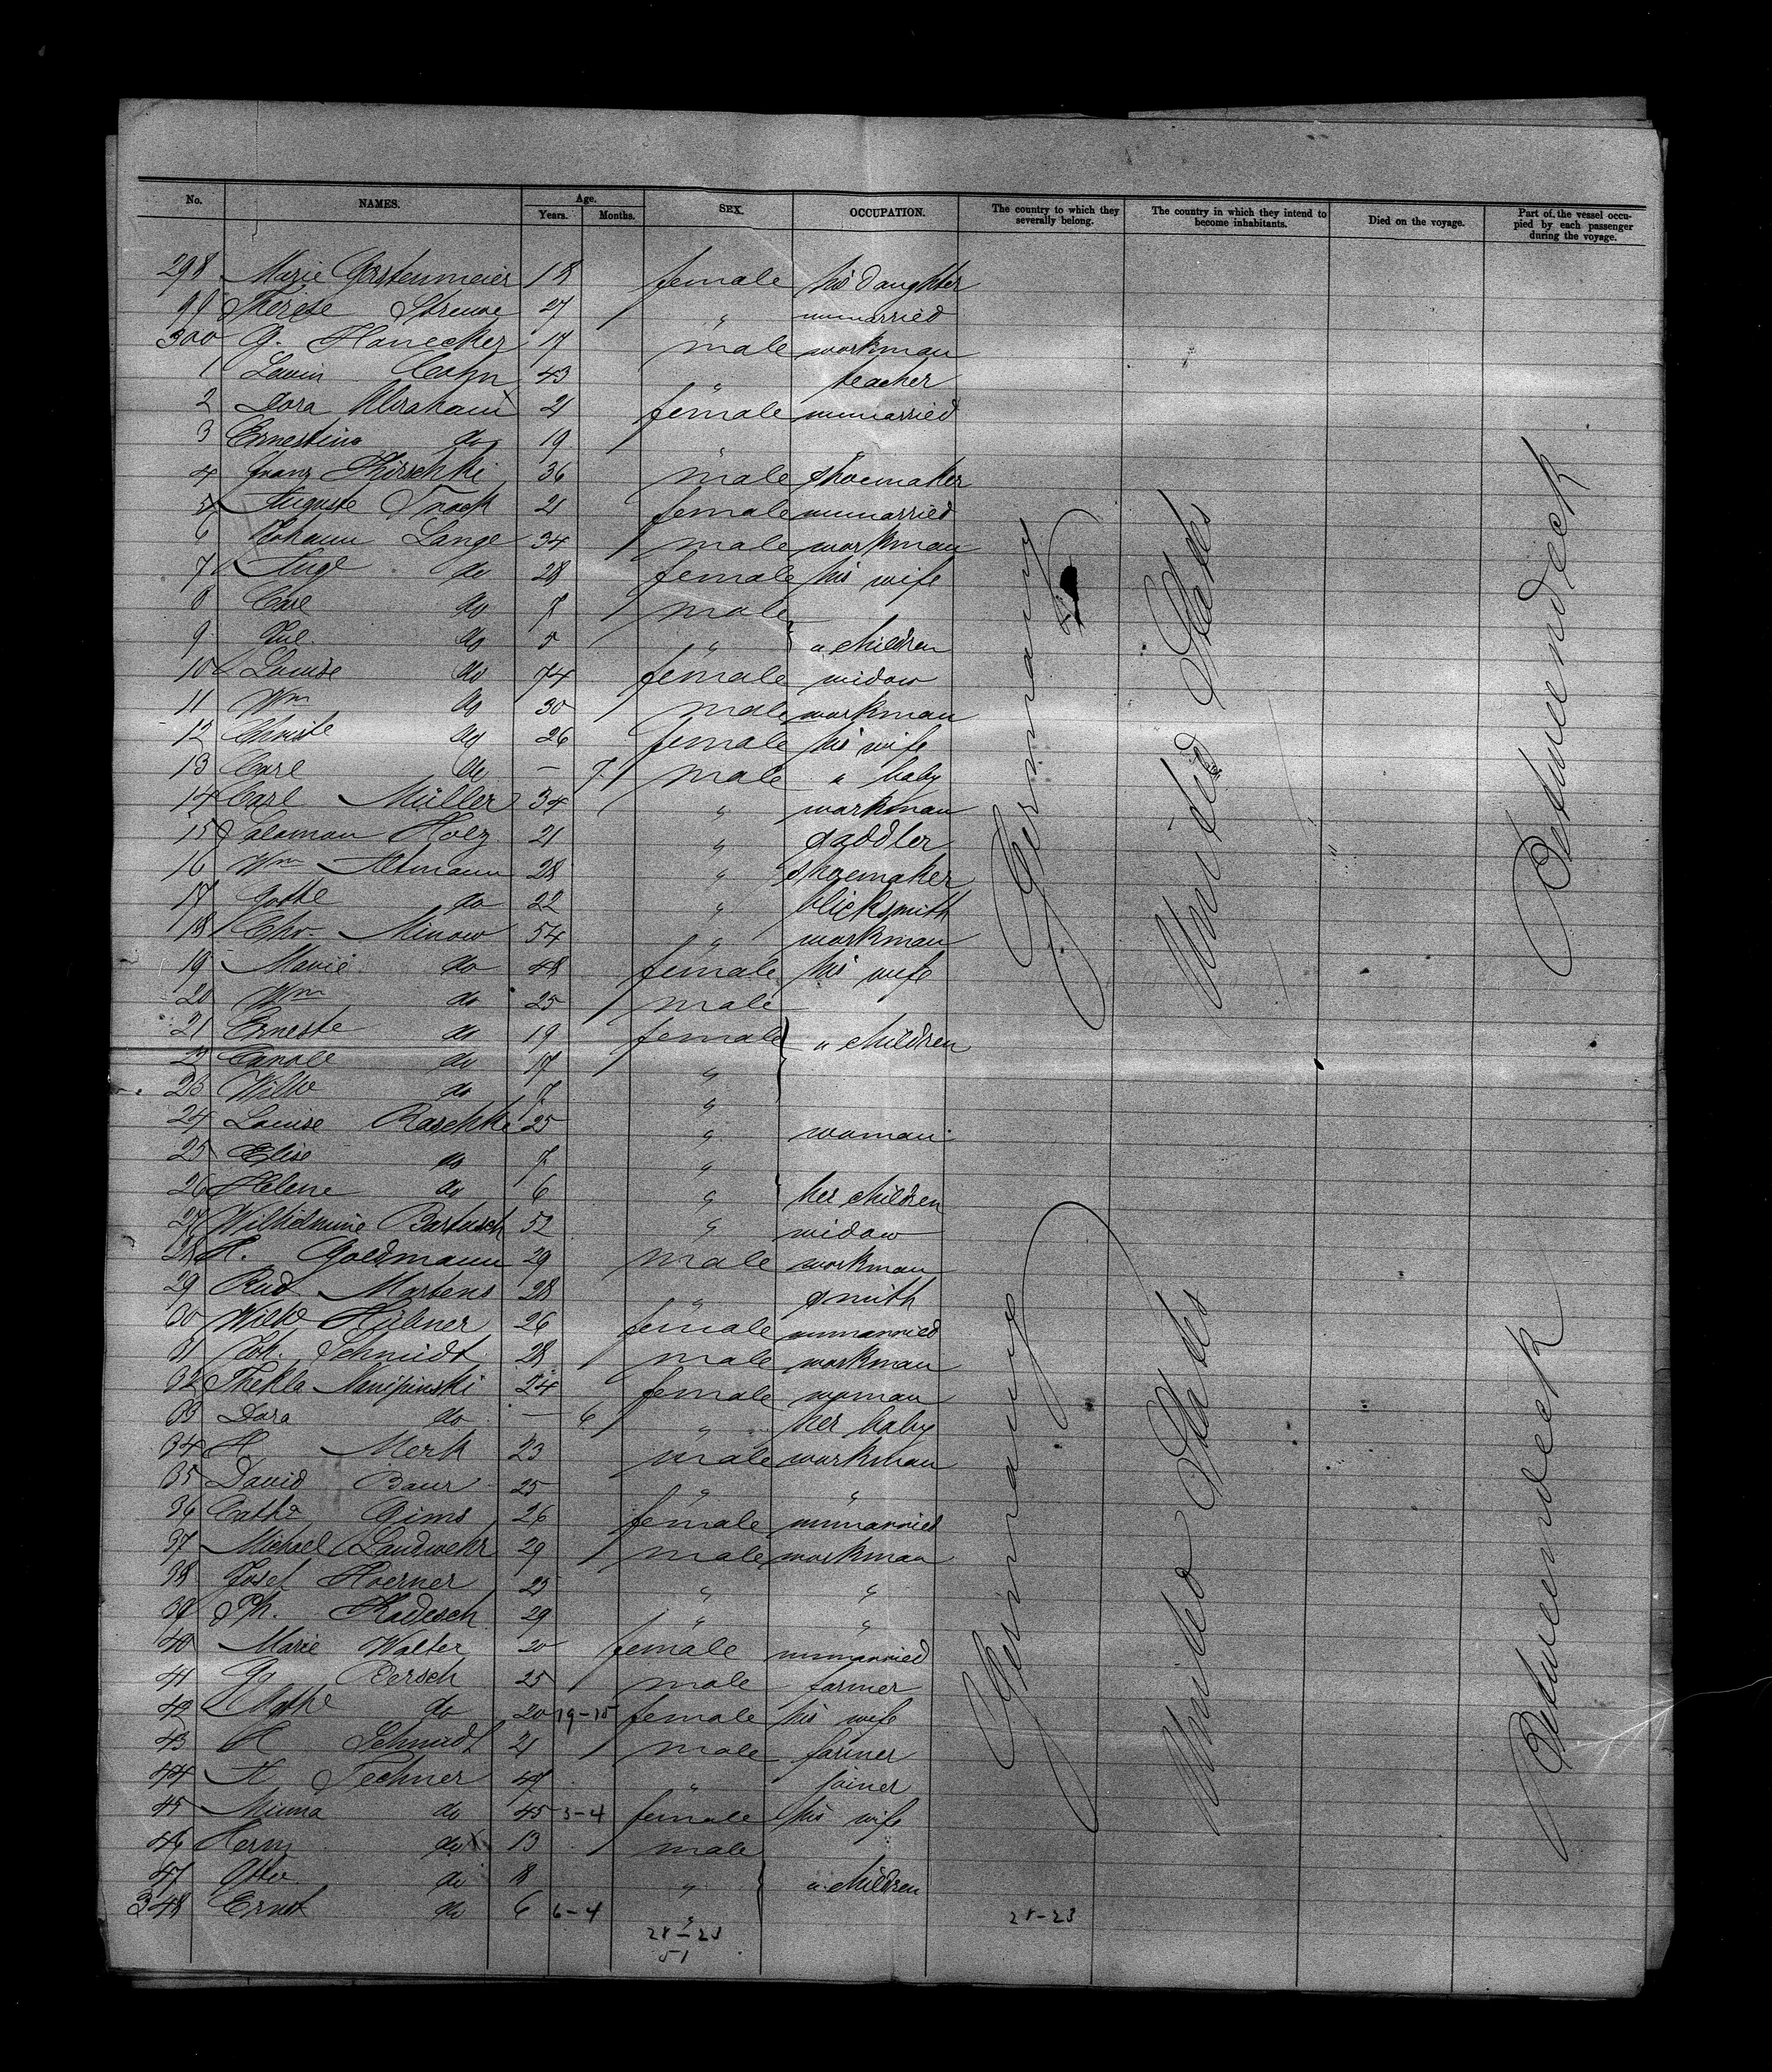 No. NAMES. Age. Years. Months. SEX. OCCUPATION. The country to which they severally belong. The country in which they intend to become inhabitants. Died on the voyage. Part of the vessel occupied by each passenger during the voyage.
298 Marie Gerstenmeier 18 female his daughter
99 Therese Struwe 27 " unmarried
300 G. Honecker 17 male workman
1 Cohn 43 " teacher
2 Dora Abraham 21 female unmarried
3 Ernestine do 19 "
4 Franz Kirschki 36 male shoemaker
5 Auguste 21 female unmarried
6 Johann Lange 34 male workman
7 Aug do 28 female his wife
8 Carl do 8 male
9 Jul. do 5 " " children
10 Louise do 74 female widow
11 Wm do 30 male workman
12 Christe do 26 female his wife
13 Carl do — 7 male " baby
14 Carl Müller 34 " workman
15 Salomon Holz 21 " saddler
16 Wm Altmann 28 " shoemaker
17 do 22 " blicksmith
18 Chr. Minow 54 " workman
19 Marie do 48 female his wife
20 Wm do 25 male
21 Erneste do 19 female " children
22 Carole do 17 "
23 Wilhe do 7 "
24 Louise Raschke 25 " woman
25 Elise do 7 "
26 Helene do 6 " her children
27 Wilhelmine Bartusch 52 " widow
28 H. Goldmann 29 male workman
29 Rud Martens 28 " smith
30 Wilhe Hübner 26 female unmarried
31 Joh. Schmidt 28 male workman
32 Thekla 24 female woman
33 Dora do — 6 " her baby
34 H Merk 23 male workman
35 David Baur 25 " "
36 Catha Gims 26 female unmarried
37 Michael Landwehr 29 male workman
38 Josef Hoerner 25 " "
39 Ph. Kadesch 29 " "
40 Marie Walter 20 female unmarried
41 G Bersch 25 male farmer
42 do 20 19-15 female his wife
43 Schmidt 21 male farmer
44 H Techner 47 " joiner
45 Minna do 45 3-4 female his wife
46 Herm do 13 male
47 Otto do 8 " " children
348 Ernst do 6 6-4 "
28-23 28-23
51
Germany
United States
Betweendeck
Germany
United States
Betweendeck